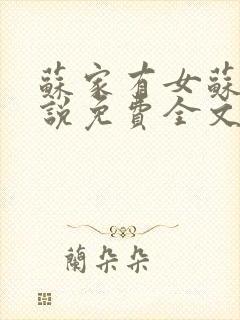 蘇家有女蘇
說免費全文
蘭朵朵